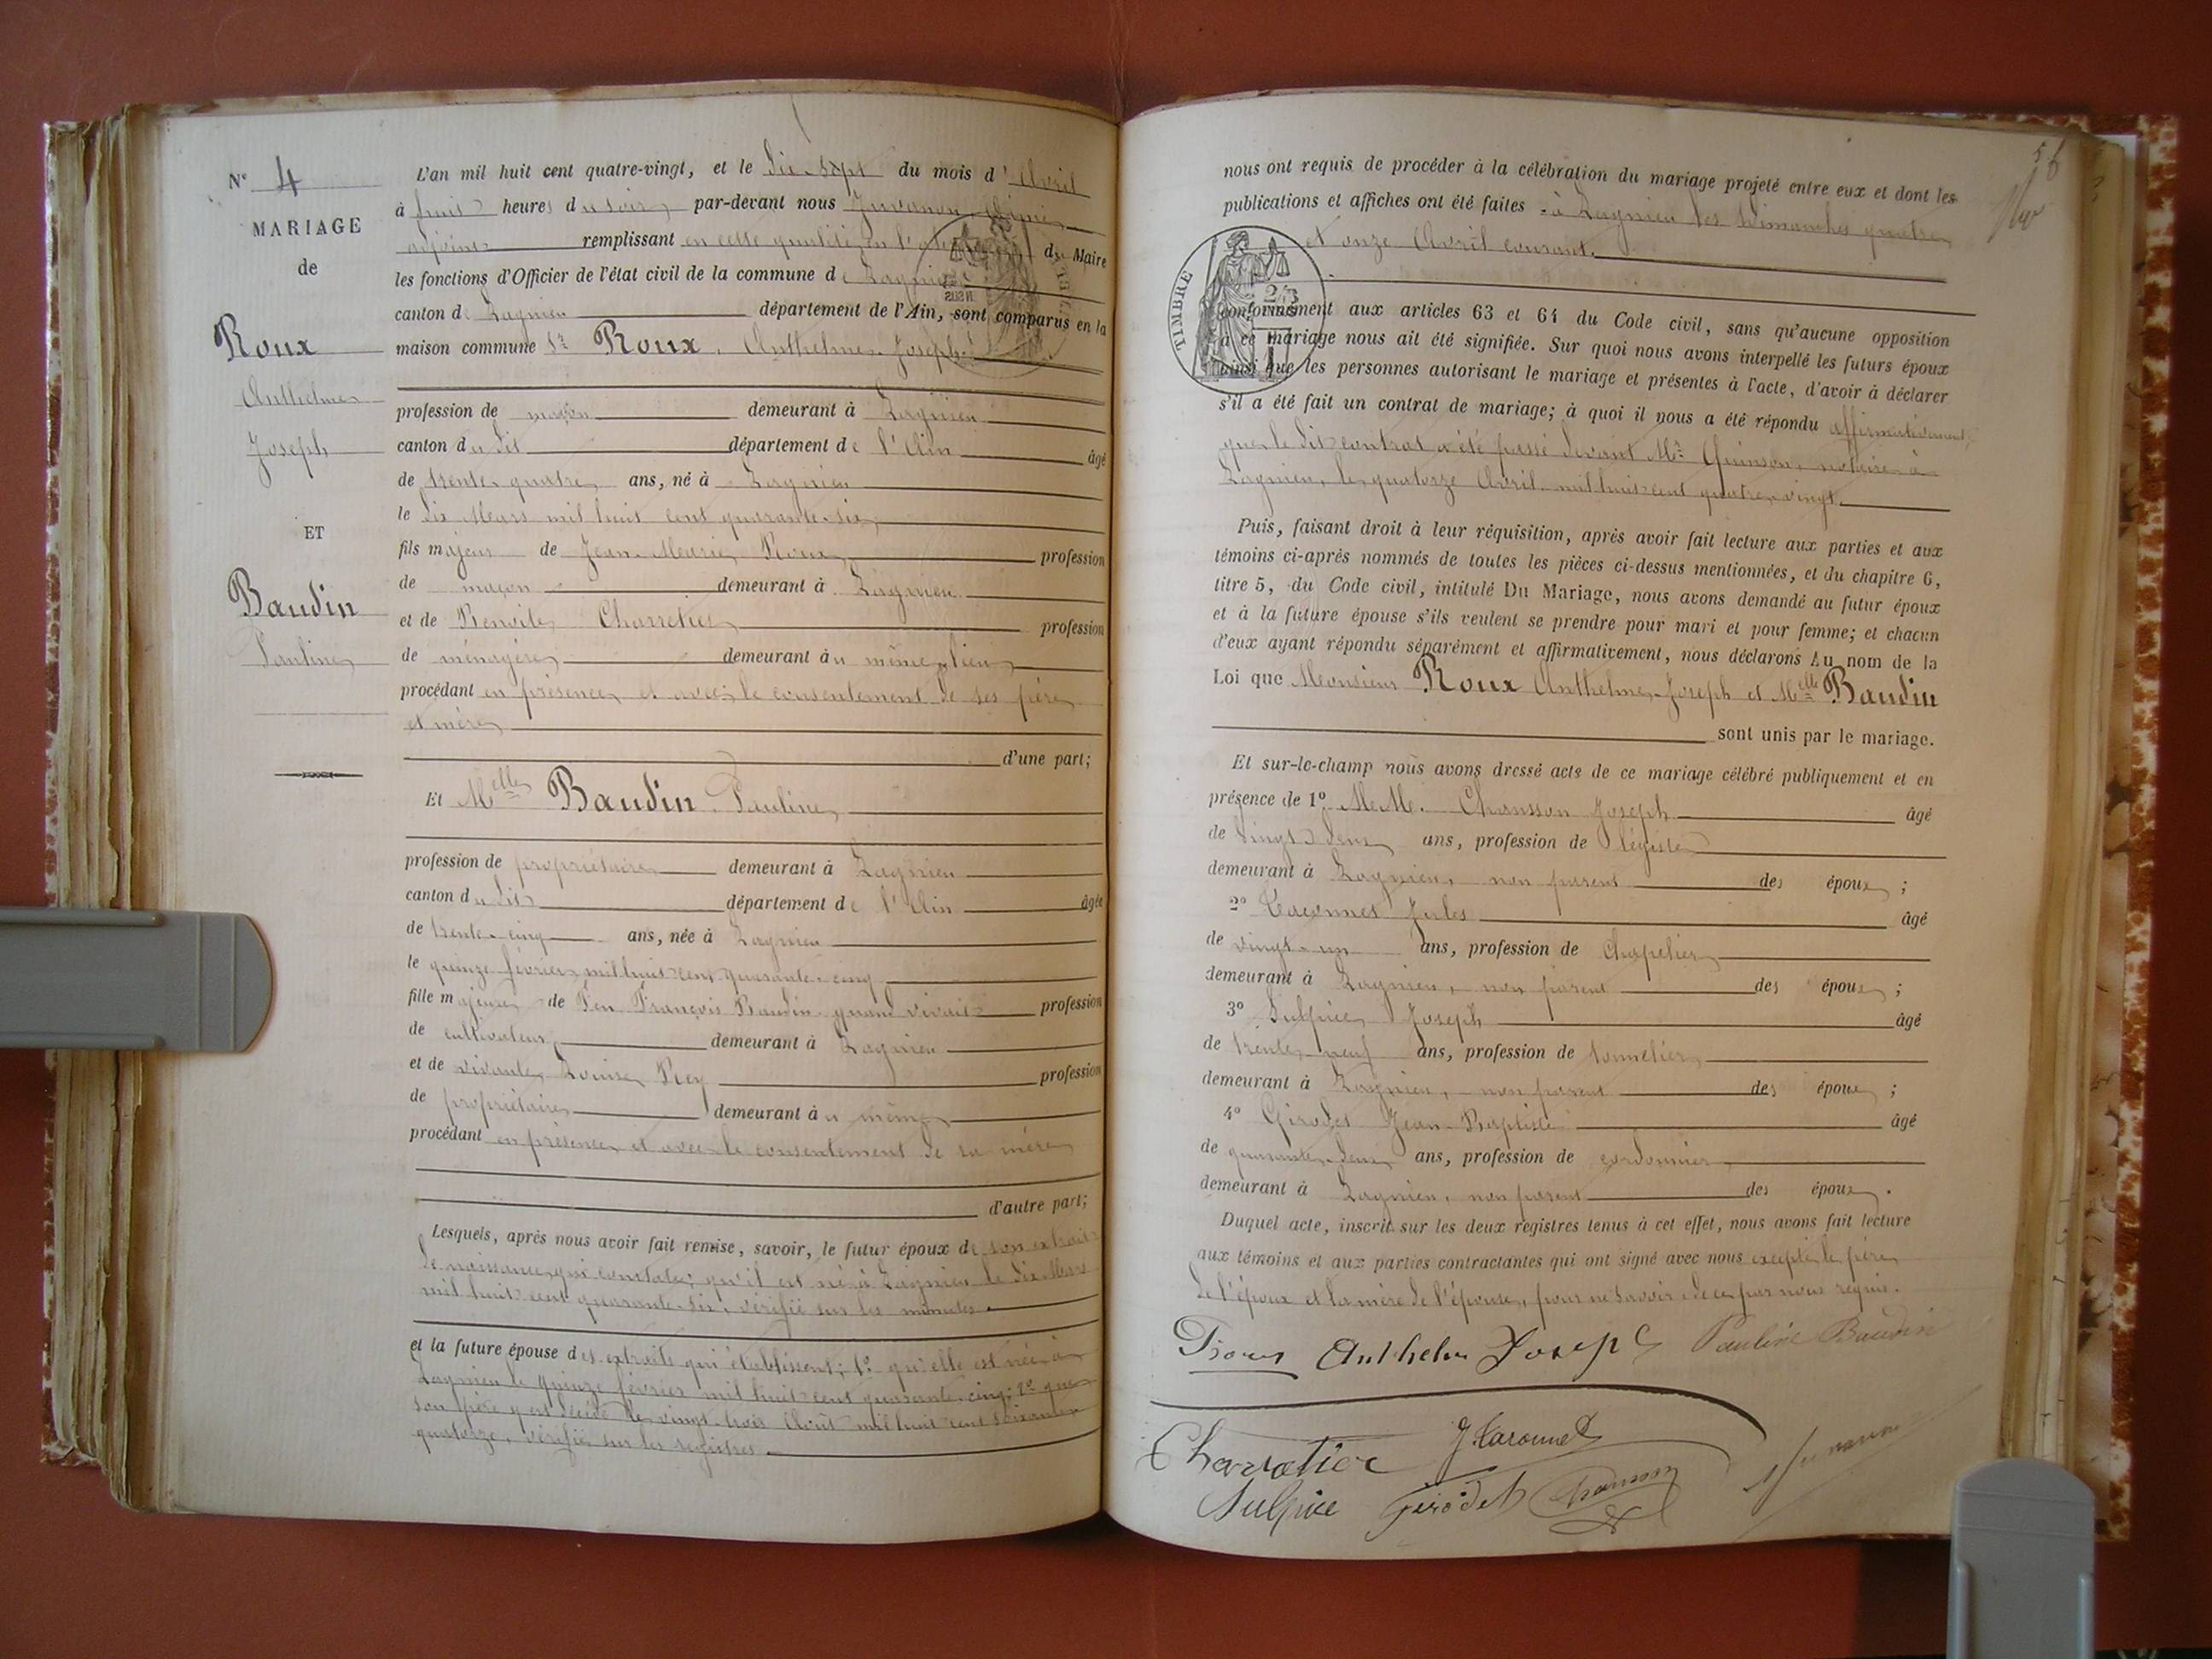 N° 4
MARIAGE
de
Roux
Anthelme
Joseph
ET
Baudin
Pauline
L'an mil huit cent quatre-vingt, et le dix sept du mois d'Avril
à huit heures du soir, par-devant nous Juvanon
adjoint remplissant en cette qualité, en l'absence du Maire
les fonctions d'Officier de l'état civil de la commune de Lagnieu
canton de Lagnieu département de l'Ain, sont comparus en la
maison commune Sr Roux, Anthelme Joseph
profession de maçon demeurant à Lagnieu
canton du dit département de l'Ain âgé
de trente quatre ans, né à Lagnieu
le dix Mars mil huit cent quarante-six,
fils majeur de Jean-Marie Roux profession
de maçon demeurant à Lagnieu
et de Benoite Charretier profession
de ménagère demeurant au même lieu
procédant en présence et avec le consentement de ses père
et mère
d'une part;
Et Melle Baudin Pauline
profession de propriétaire demeurant à Lagnieu
canton du dit département de l'Ain âgée
de trente-cinq ans, née à Lagnieu
le quinze février mil huit cent quarante-cinq
fille majeure de feu François Baudin quand vivait profession
de cultivateur demeurant à Lagnieu
et de vivante Louise Rey profession
de propriétaire demeurant au même
procédant en présence et avec le consentement de sa mère
d'autre part;
Lesquels, après nous avoir fait remise, savoir, le futur époux de son extrait
de naissance qui constate: qu'il est né à Lagnieu le dix Mars
mil huit cent quarante-six, vérifié sur les minutes.
et la future épouse des extraits qui établissent: 1° qu'elle est née à
Lagnieu le quinze février mil huit cent quarante-cinq; 2° que
son père y est décédé le vingt-trois Août mil huit cent soixante
quatorze, vérifié sur les registres.
56
nous ont requis de procéder à la célébration du mariage projeté entre eux et dont les
publications et affiches ont été faites à Lagnieu les dimanches quatre
et onze Avril courant.
TIMBRE
conformément aux articles 63 et 64 du Code civil, sans qu'aucune opposition
à ce mariage nous ait été signifiée. Sur quoi nous avons interpellé les futurs époux
ainsi que les personnes autorisant le mariage et présentes à l'acte, d'avoir à déclarer
s'il a été fait un contrat de mariage; à quoi il nous a été répondu affirmativement,
que le dit contrat a été passé devant Me Quinson, notaire à
Lagnieu, le quatorze Avril mil huit cent quatre-vingt.
Puis, faisant droit à leur réquisition, après avoir fait lecture aux parties et aux
témoins ci-après nommés de toutes les pièces ci-dessus mentionnées, et du chapitre 6,
titre 5, du Code civil, intitulé Du Mariage, nous avons demandé au futur époux
et à la future épouse s'ils veulent se prendre pour mari et pour femme; et chacun
d'eux ayant répondu séparément et affirmativement, nous déclarons Au nom de la
Loi que Monsieur Roux Anthelme-Joseph et Melle Baudin
sont unis par le mariage.
Et sur-le-champ nous avons dressé acte de ce mariage célébré publiquement et en
présence de 1° M.M. Chansson Joseph âgé
de vingt-deux ans, profession de légiste
demeurant à Lagnieu, non parent des époux;
2° Caronnet Jules âgé
de vingt-un ans, profession de Chapelier
demeurant à Lagnieu, non parent des époux;
3° Sulpice Joseph âgé
de trente-neuf ans, profession de tonnelier
demeurant à Lagnieu, non parent des époux;
4° Girodet Jean-Baptiste âgé
de quarante-deux ans, profession de cordonnier
demeurant à Lagnieu, non parent des époux.
Duquel acte, inscrit sur les deux registres tenus à cet effet, nous avons fait lecture
aux témoins et aux parties contractantes qui ont signé avec nous excepté le père
de l'époux et la mère de l'épouse, pour ne savoir de ce par nous requis.
Roux Anthelm Joseph Pauline Baudin
Charratier J Caronnet
Sulpice Girodet Chansson Juvanon